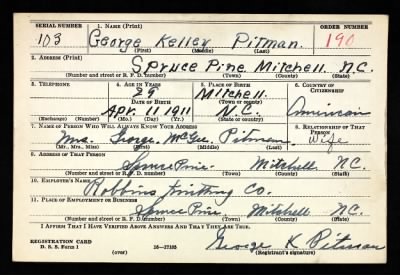 SERIAL NUMBER 1. NAME (Print) ORDER NUMBER
103 George Kelley Pitman 190
(First) (Middle) (Last)
2. ADDRESS (Print)
Spruce Pine Mitchell N.C.
(Number and street or R. F. D. number) (Town) (County) (State)
3. TELEPHONE 4. AGE IN YEARS 5. PLACE OF BIRTH 6. COUNTRY OF CITIZENSHIP
29 Mitchell
DATE OF BIRTH
Apr. 1 1911 N.C. American
(Exchange) (No.) (Mo.) (Day) (Yr.) (State or country)
7. NAME OF PERSON WHO WILL ALWAYS KNOW YOUR ADDRESS 8. RELATIONSHIP OF THAT PERSON
Mrs. George McGee Pitman Wife
(Mr., Mrs., Miss) (First) (Middle) (Last)
9. ADDRESS OF THAT PERSON
Spruce Pine Mitchell N.C.
(Number and street or R. F. D. number) (Town) (County) (State)
10. EMPLOYER'S NAME
Robbins Knitting Co.
11. PLACE OF EMPLOYMENT OR BUSINESS
Spruce Pine Mitchell N.C.
(Number and street or R. F. D. number) (Town) (County) (State)
I AFFIRM THAT I HAVE VERIFIED ABOVE ANSWERS AND THAT THEY ARE TRUE.
REGISTRATION CARD
D. S. S. Form 1 16—17105 George K Pitman
(over) (Registrant's signature)